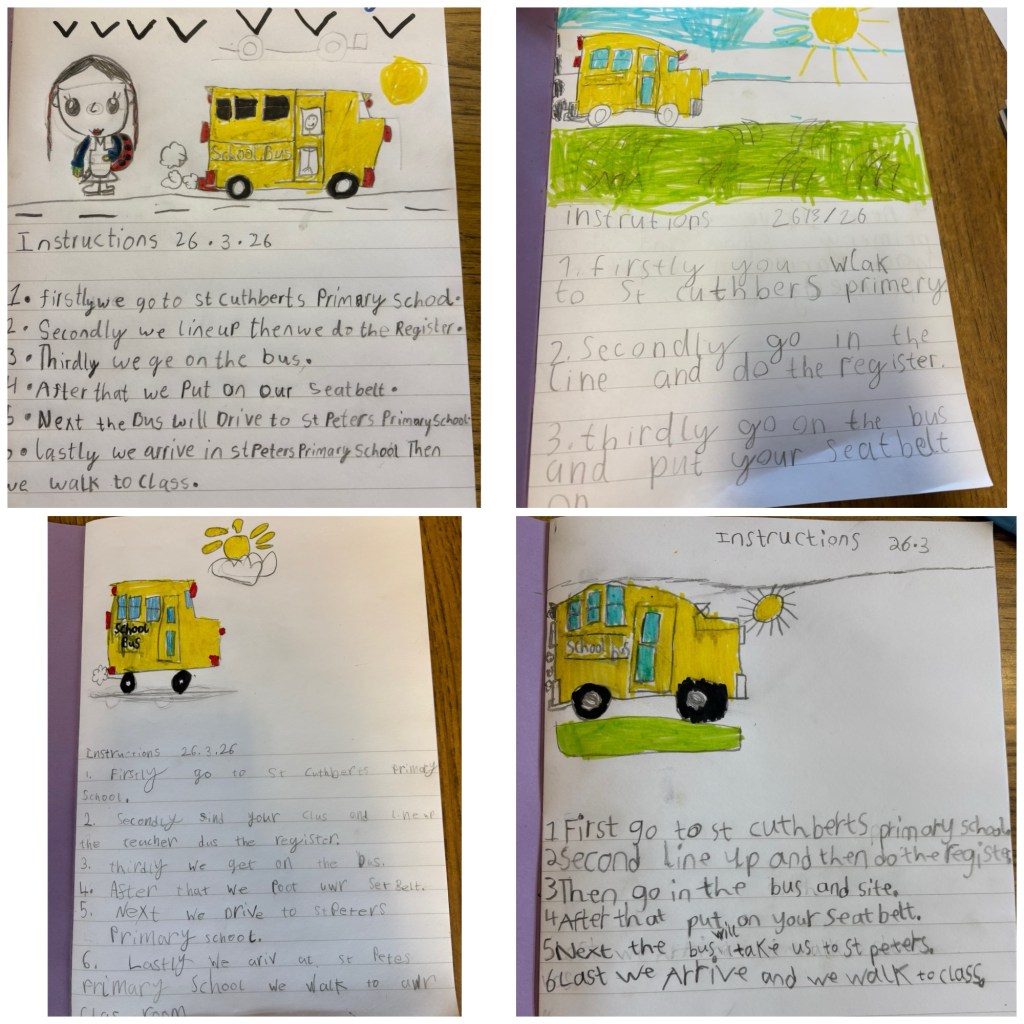 School Bus
Instructions 26.3.26
1. firstly we go to st Cuthberts Primary School.
2. Secondly we line up then we do the Register.
3. Thirdly we ge on the bus.
4. After that we Put on our seatbelt.
5. Next the Bus will Drive to st Peters Primary School
. lastly we arrive in st Peters Primary School Then
we walk to class.
instrutions 26/3/26
1. firstly you wlak
to St cuthbers primery.
2. Secondly go in the
line and do the register.
3. thirdly go on the bus
and put your seatbelt
on
School
Bus
Instructions 26.3.26
1. Firstly go to St Cuthberts Primary
School.
2. Secondly find your clas and lineup
the teacher dus the register.
3. thirdly we get on the bus.
4. After that we Poot uwr Set Belt.
5. Next we Drive to st Peters
Primary school.
6. Lastly we ariv at st Petes
Primary School we walk to uwr
clas room
Instructions 26.3
School bus
1 First go to st cuthberts primary school
2 Second line up and then do the registe
3 Then go in the bus and site.
4 After that put on your seatbelt.
5 Next the bus will take us to st peters.
6 Last we Arrive and we walk to class.